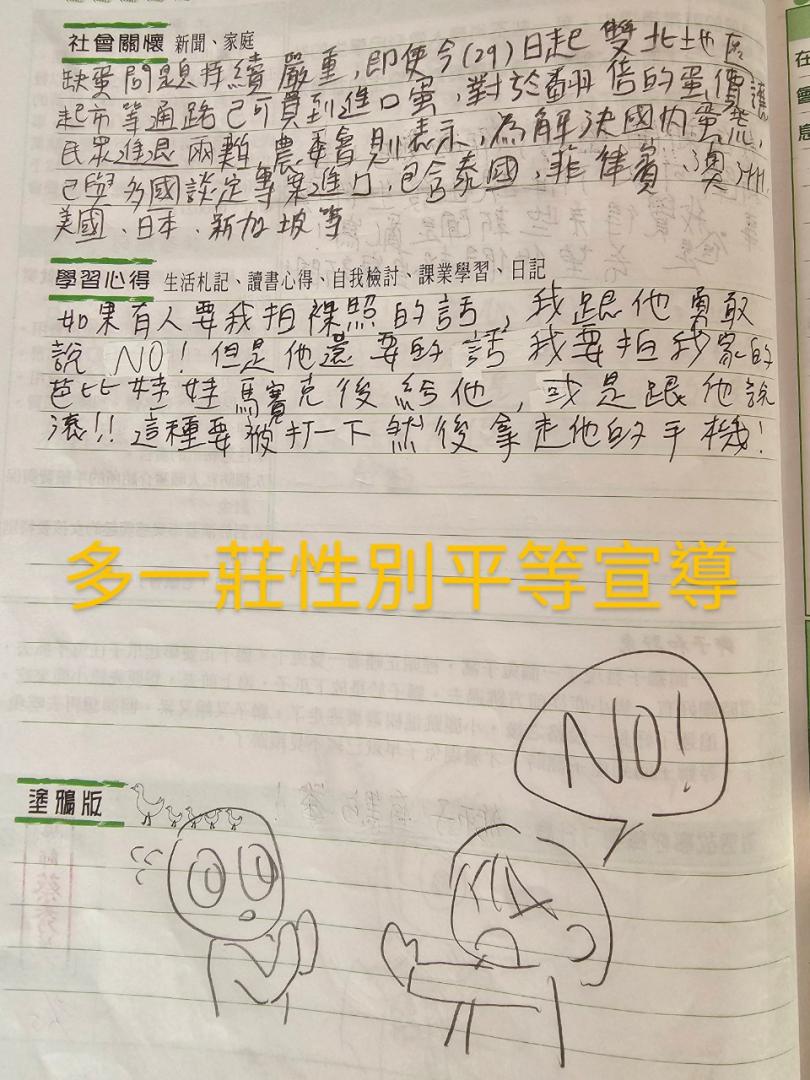 社會關懷 新聞、家庭
缺蛋問題持續嚴重,即使今(29)日起雙北地區
起市等通路已可買到進口蛋,對於翻倍的蛋價讓
民眾進退兩難,農委會則表示,為解決國內蛋荒,
已與多國談定專案進口,包含泰國,菲律賓、澳洲,
美國、日本、新加坡等
學習心得 生活札記、讀書心得、自我檢討、課業學習、日記
如果有人要我拍裸照的話,我跟他勇敢
說 NO!但是他還要的話我要拍我家的
芭比娃娃馬賽克後給他,或是跟他說
滾!!這種要被打一下然後拿走他的手機!
多一莊性別平等宣導
NO!
塗鴉版